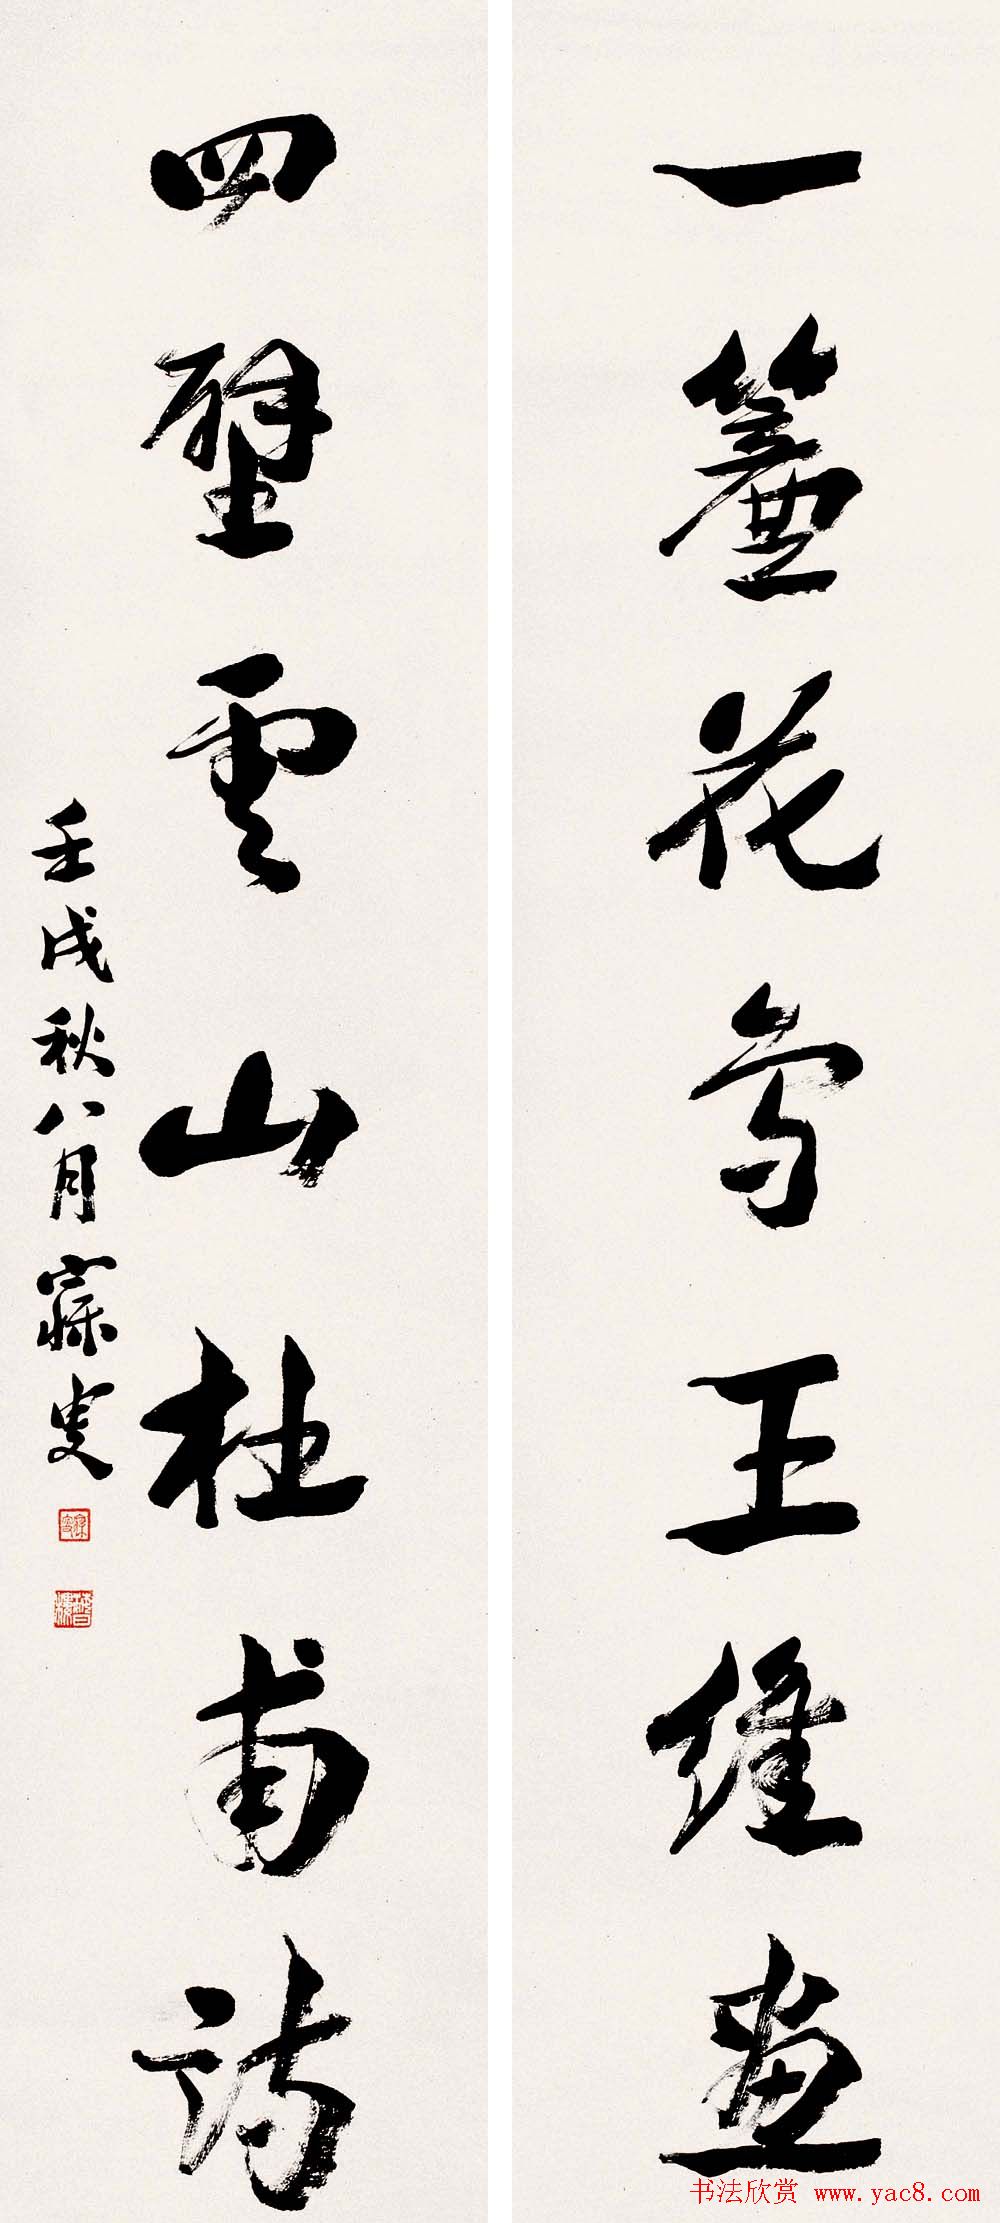 一簾花鳥王維畫
四壁雲山杜甫詩
壬戌秋八月寐叟
书法欣赏 www.yac8.com